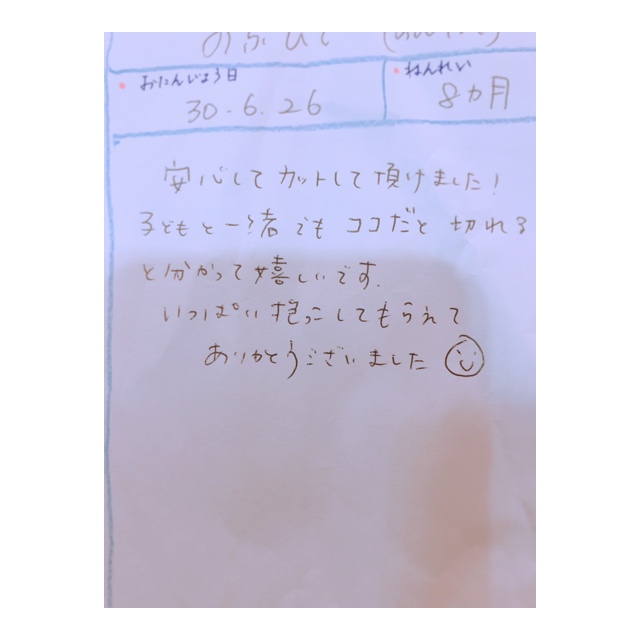 おたんじょう日
ねんれい
30.6.26
8ヵ月
安心してカットして頂けました!
子どもと一緒でもココだと切れる
と分かって嬉しいです.
いっぱい抱っこしてもらえて
ありがとうございました